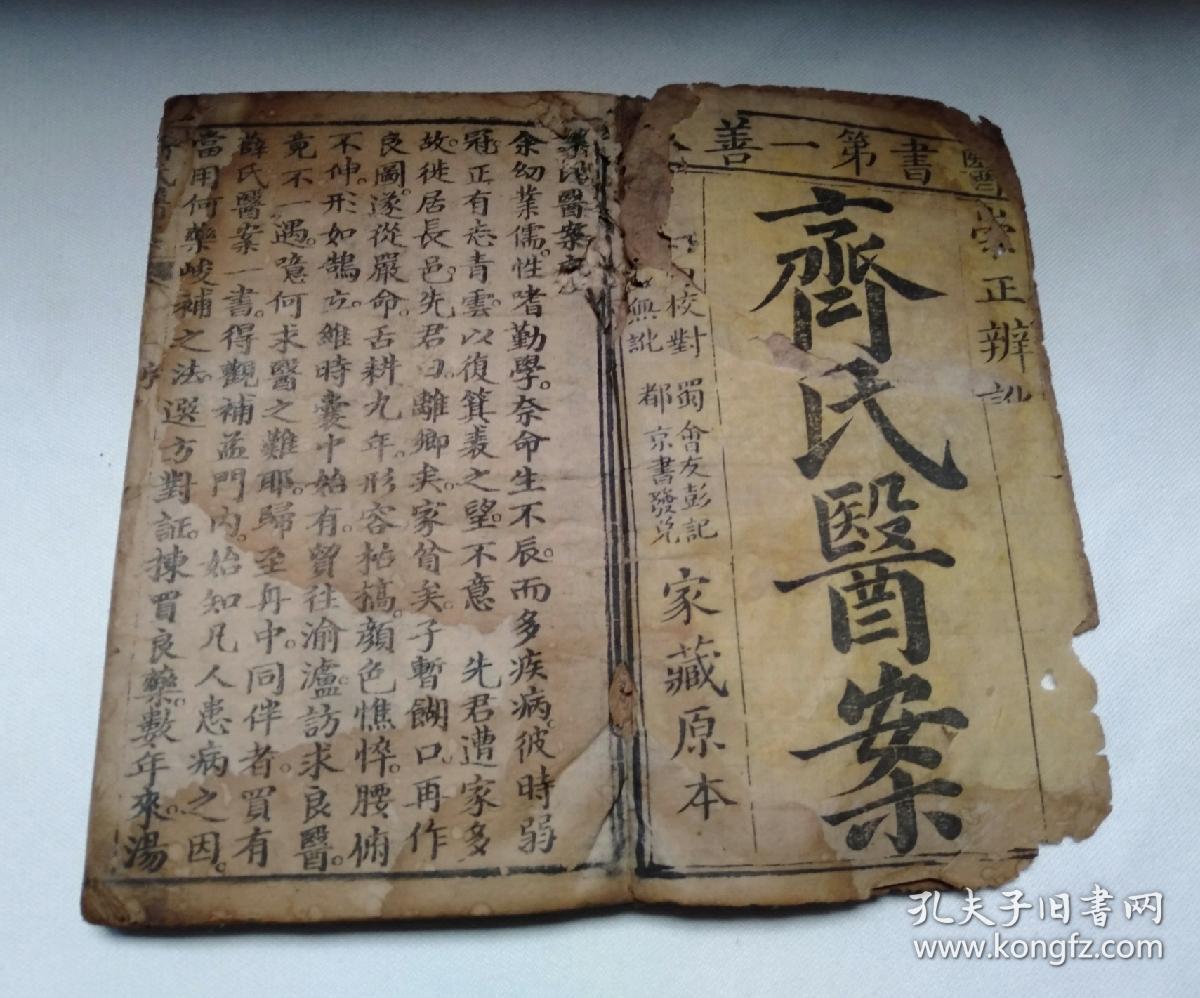 醫書第一善
崇正辨訛
齊氏醫案
校對無訛
蜀都會友彭記京書發兌
家藏原本
齊氏醫案
余幼業儒。性嗜勤學。奈命生不辰。而多疾病。彼時弱
冠正有志青雲。以復箕裘之望。不意 先君遭家多
故。徙居長邑。先君曰。離鄉矣。家貧矣。子暫餬口。再作
良圖。遂從嚴命。舌耕九年。形容枯槁。顏色憔悴。腰俯
不伸。形如鵠立。維時囊中始有。貿往渝瀘。訪求良醫。
竟不一遇。噫何求醫之難耶。歸至舟中。同伴者。買有
薛氏醫案一書。得觀補益門內。始知凡人患病之因。
當用何藥峻補之法。選方對証。揀買良藥。數年來。湯
序
孔夫子旧書网
www.kongfz.com